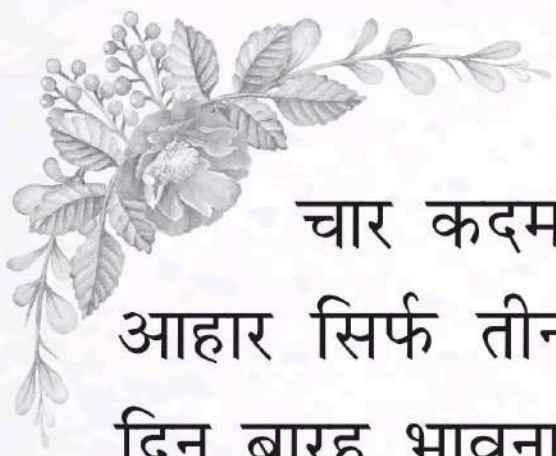 चार कदम
आहार सिर्फ तीन
दिन बारह भावना